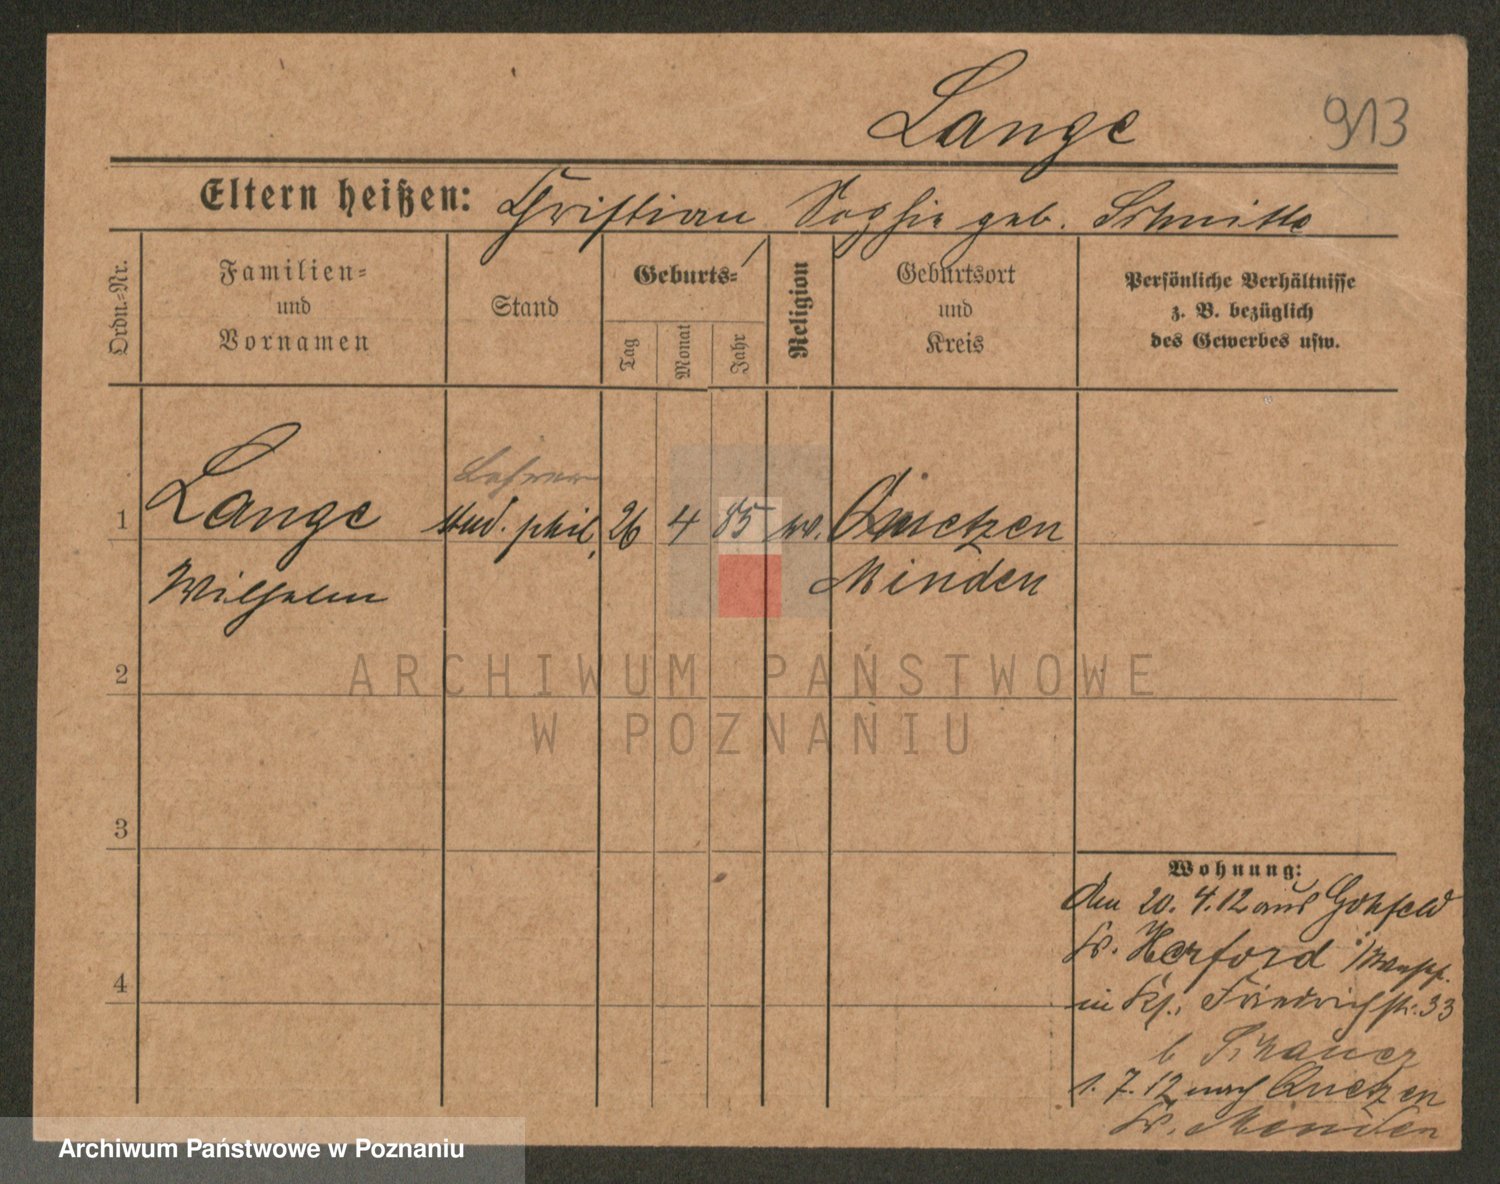 Lange 913
Eltern heißen: Christian Sophie geb. Schnitte
Ordn.-Nr.
Familien-
und
Vornamen
Stand
Geburts-
Tag
Monat
Jahr
Religion
Geburtsort
und
Kreis
Persönliche Verhältnisse
z. B. bezüglich
des Gewerbes usw.
Lehrer
1 Lange stud. phil. 26 4 85 ev. Quetzen
Wilhelm Minden
2
ARCHIWUM PAŃSTWOWE
W POZNANIU
3
Wohnung:
den 20. 4. 12 aus Gohfeld
Kr. Herford
4
in Friedrichstr. 33
b
1. 7. 12 nach Quetzen
Kr. Minden
Archiwum Państwowe w Poznaniu